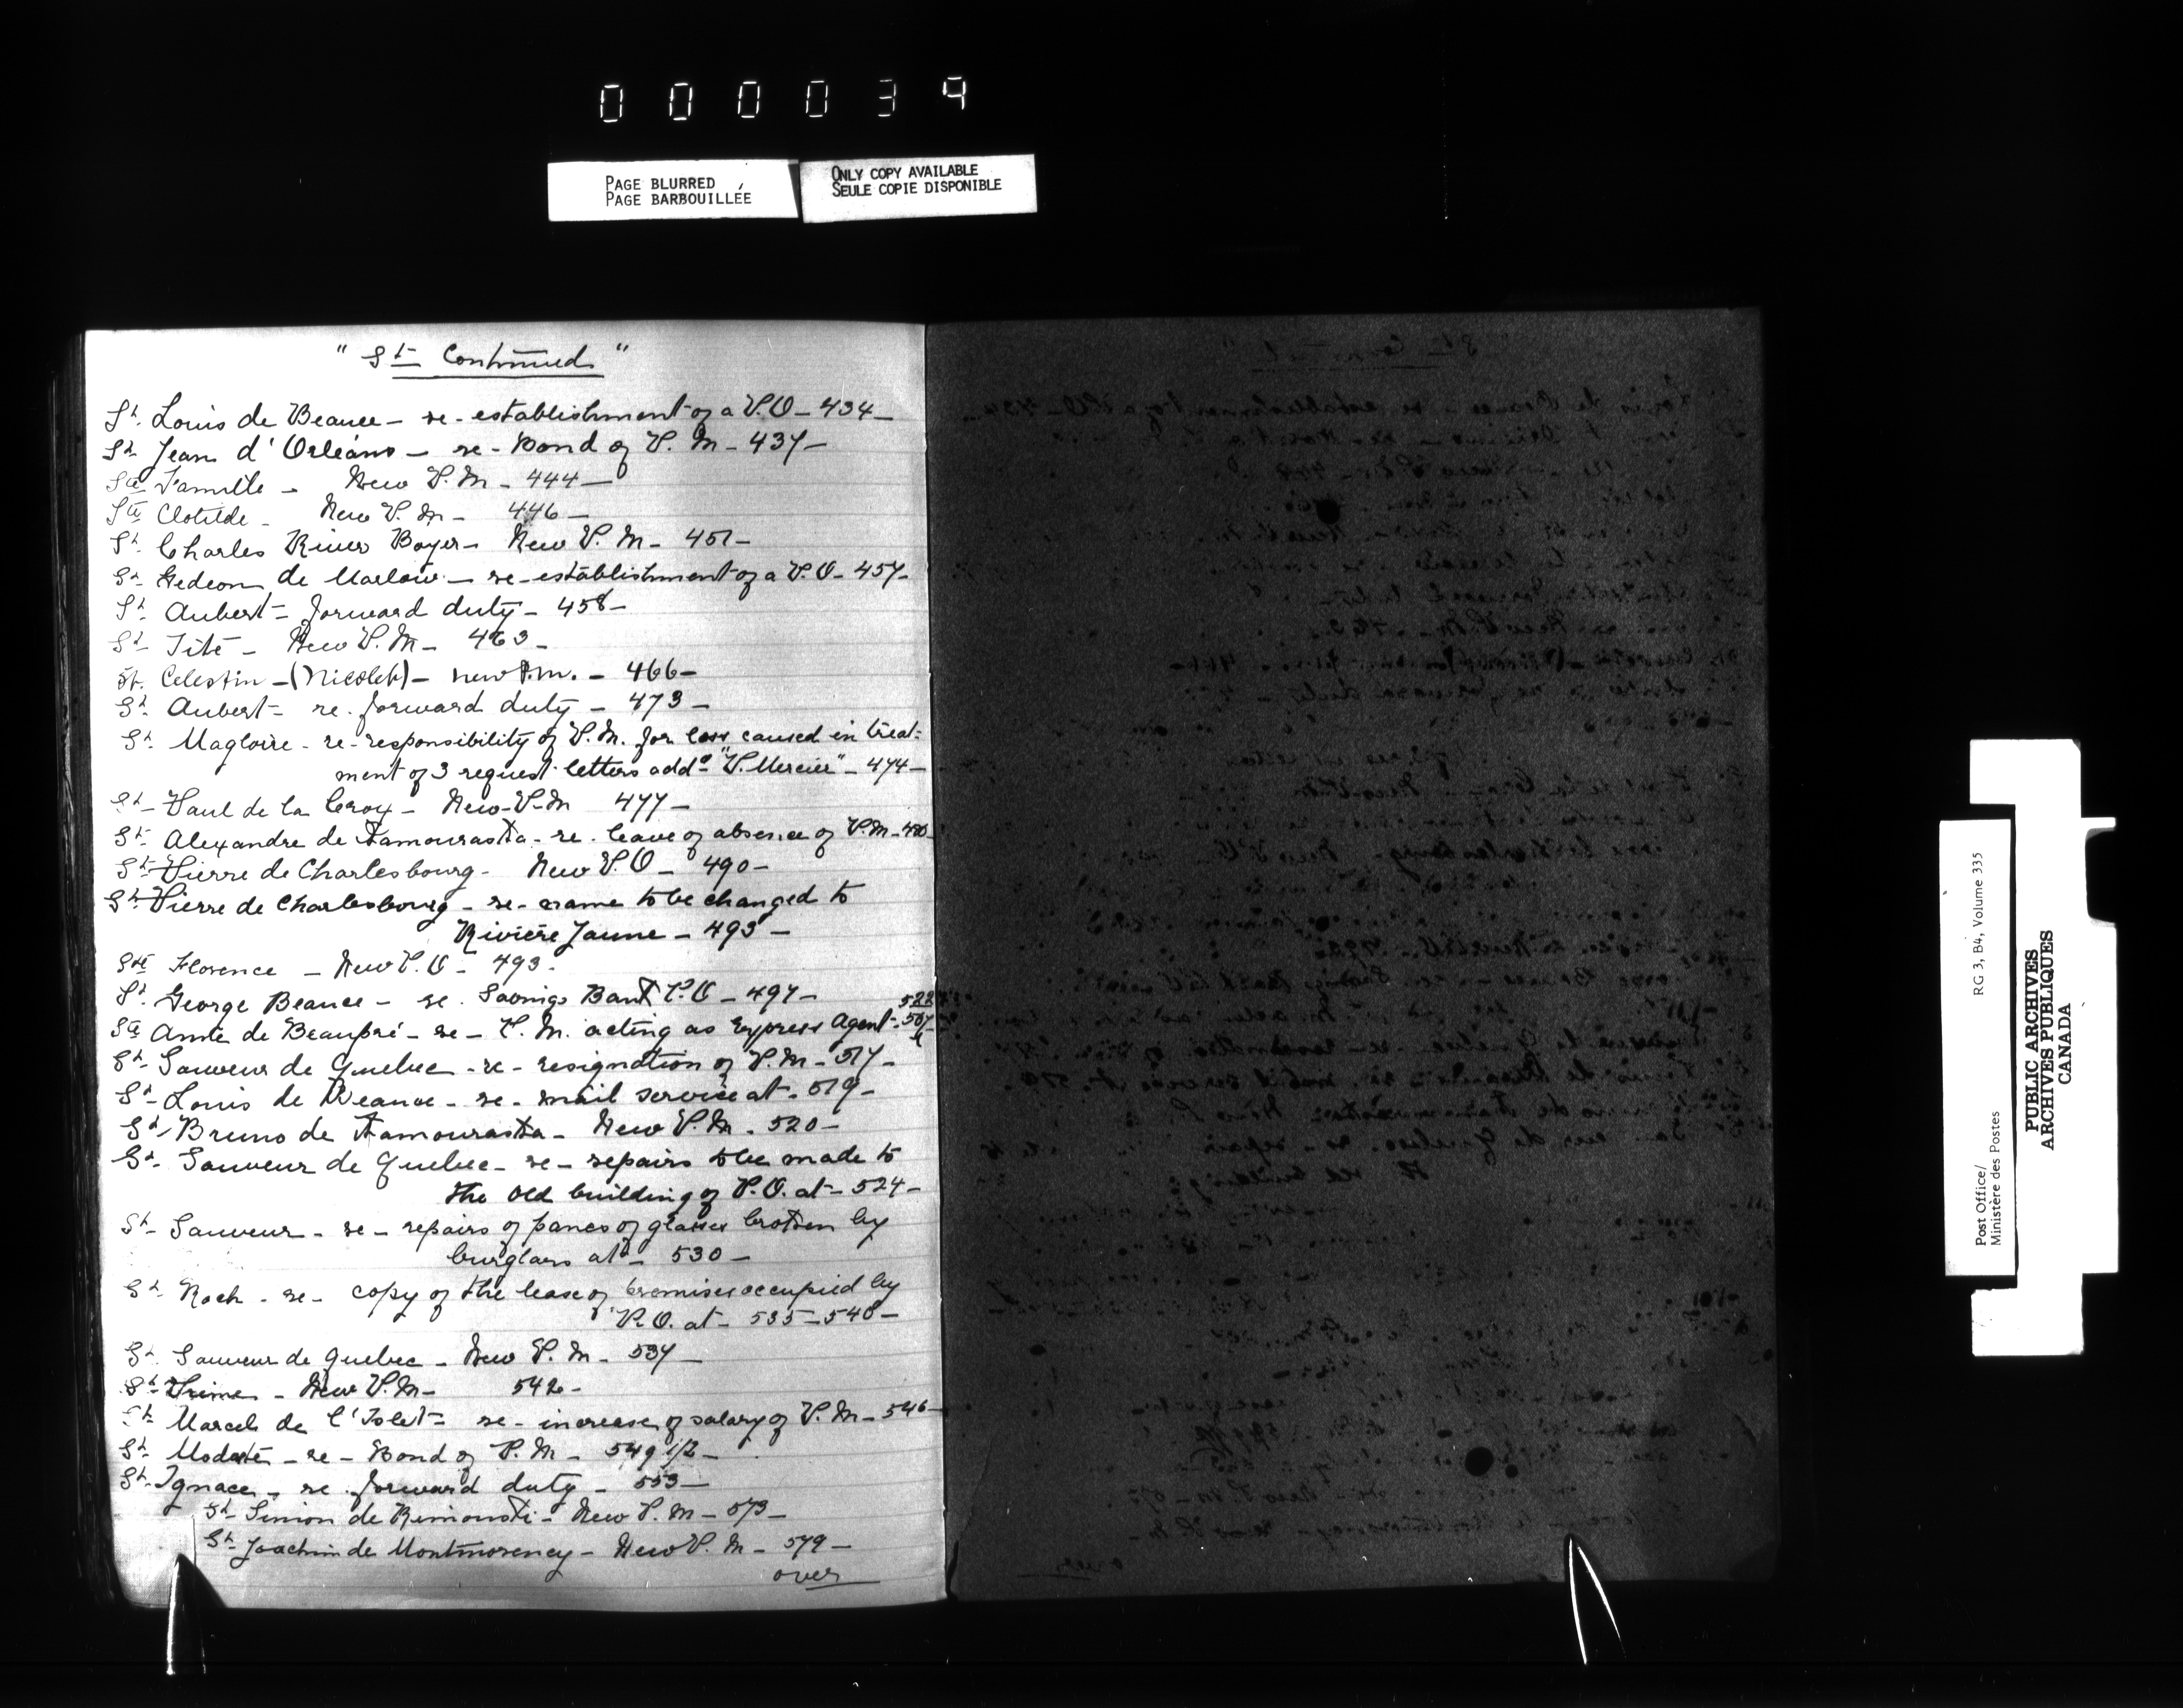 000039
PAGE BLURRED
PAGE BARBOUILLÉE
ONLY COPY AVAILABLE
SEULE COPIE DISPONIBLE
" St Continued "
St. Louis de Beauce – re-establishment of a P.O – 434 –
St Jean d'Orléans – re-Bond of P.M – 437 –
Ste Famille – New P.M – 444 –
Ste Clotilde – New P.M – 446 –
St. Charles River Boyer – New P.M – 451 –
St Gedeon de Marlow – re-establishment of a P.O – 457 –
St Aubert – forward duty – 458 –
St Tite – New P.M – 463 –
St. Celestin – (Nicolet) – new P.m. – 466 –
St Aubert – re. forward duty – 473 –
St. Magloire – re-responsibility of P.M. for loss caused in treat-
ment of 3 request letters addd "P. Mercier" – 474 –
St – Paul de la Croix – New-P-M 477 –
St Alexandre de Kamouraska – re. leave of absence of P.M – 480 –
St – Pierre de Charlesbourg – New P.O – 490 –
St – Pierre de Charlesbourg – re – name to be changed to
Rivière Jaune – 493 –
Ste Florence – New P.O – 493 –
St. George Beauce – re. Savings Bank P.O – 497 –
522
Ste Anne de Beaupré – re – P.M. acting as Express Agent – 507
St – Sauveur de Quebec – re – resignation of P.M – 517 –
St – Louis de Beauce – re – mail service at – 519 –
St – Bruno de Kamouraska – New P.M. – 520 –
St – Sauveur de Quebec – re – repairs to be made to
the old building of P.O. at – 524 –
St – Sauveur – re – repairs of panes of glasses broken by
burglars at – 530 –
St Roch – re – copy of the lease of premises occupied by
P.O. at – 535 – 540 –
St. Sauveur de Quebec – New P.M – 537 –
St Prime – New P.M – 542 –
St Marcel de l'Islet – re – increase of salary of P.M – 546 –
St. Modeste – re – Bond of P.M – 549 1/2 –
St – Ignace – re forward duty – 553 –
St – Simon de Rimouski – New P.M – 573 –
St – Joachim de Montmorency – New P.M – 579 –
over
Post Office/
Ministère des Postes
RG 3, B4, Volume 335
PUBLIC ARCHIVES
ARCHIVES PUBLIQUES
CANADA